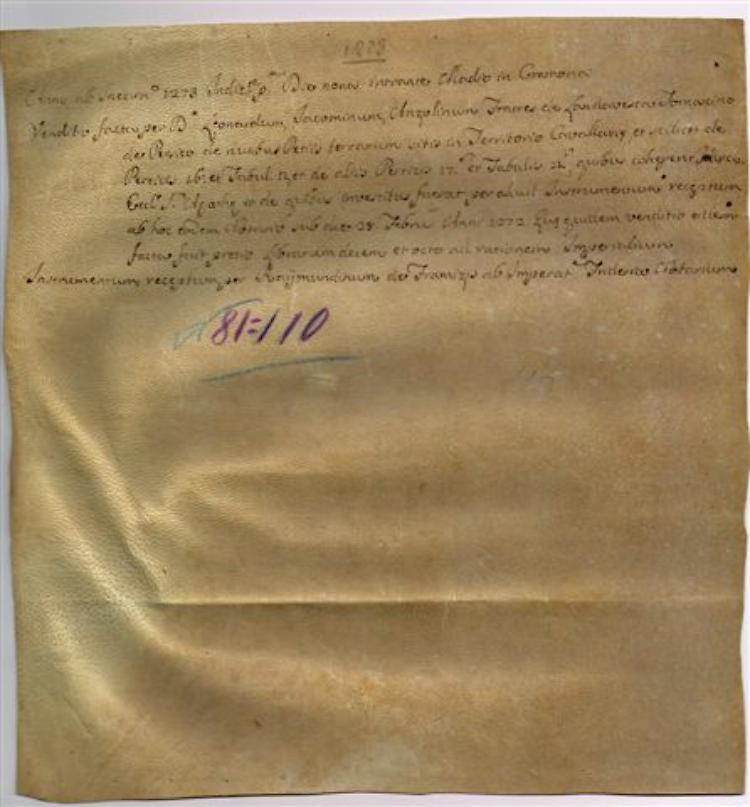 1273
Anno ab Incarn.º 1273 Indict. p.ª Die nono intrante Madio in Cremona
Venditio facta per D. Leonardum, Jacominum, Anzolinum Fratres de Tomacino
de Persico de duabus Petiis terrarum sitis in Territorio et scilicet de
Perticis 16 et Tabul. 12 et de aliis Perticis 17 et Tabulis quibus coherent
Eccl. S. et de quibus investitus fuerat per aliud Instrumentum receptum
ab hoc eodem Notario sub die 28 Febru. Anni 1272 que quidem venditio etiam
facta fuit pretio librarum decem et octo ad rationem Imperialium
Instrumentum receptum per Raijmundinum de ab Imperat. Notarium
81=110